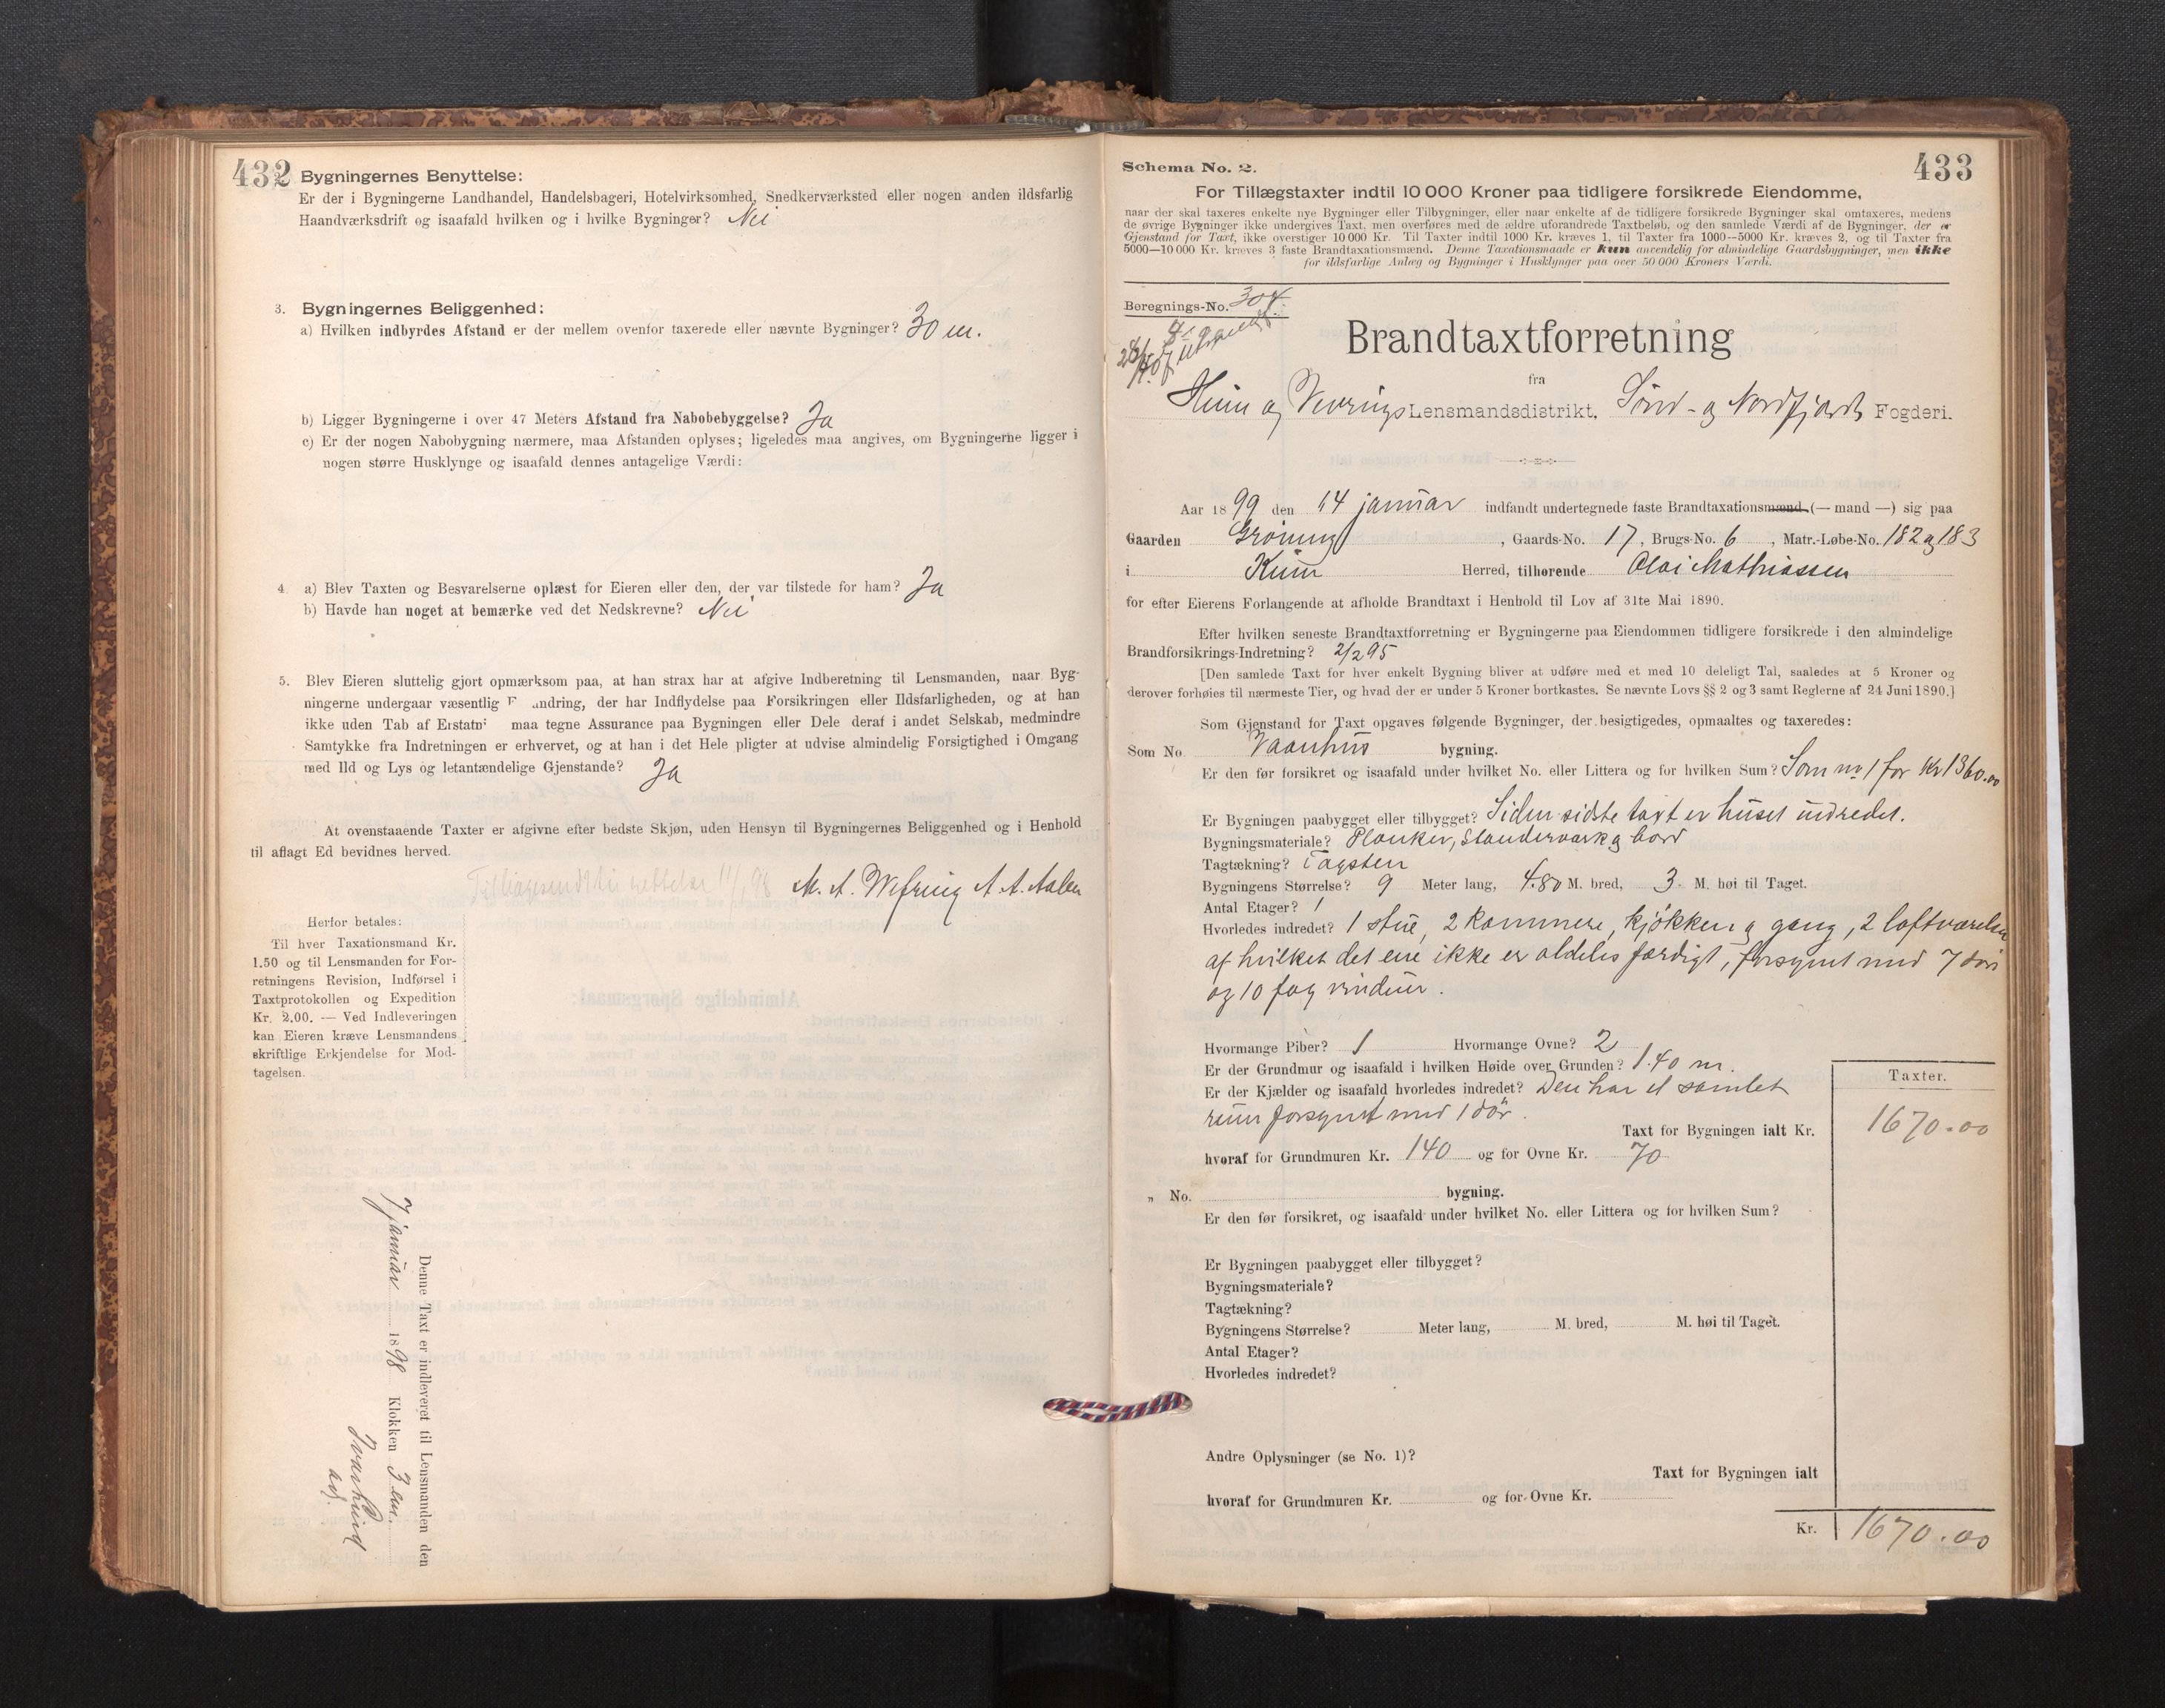 432
Bygningernes Benyttelse:
Er der i Bygningerne Landhandel, Handelsbageri, Hotelvirksomhed, Snedkerværksted eller nogen anden ildsfarlig
Haandværksdrift og isaafald hvilken og i hvilke Bygninger? Nei
3. Bygningernes Beliggenhed:
a) Hvilken indbyrdes Afstand er der mellem ovenfor taxerede eller nævnte Bygninger? 30 m.
b) Ligger Bygningerne i over 47 Meters Afstand fra Nabobebyggelse? Ja
c) Er der nogen Nabobygning nærmere, maa Afstanden oplyses; ligeledes maa angives, om Bygningerne ligger i
nogen større Husklynge og isaafald dennes antagelige Værdi:
4. a) Blev Taxten og Besvarelserne oplæst for Eieren eller den, der var tilstede for ham? Ja
b) Havde han noget at bemærke ved det Nedskrevne? Nei
5. Blev Eieren sluttelig gjort opmærksom paa, at han strax har at afgive Indberetning til Lensmanden, naar Byg-
ningerne undergaar væsentlig F andring, der har Indflydelse paa Forsikringen eller Ildsfarligheden, og at han
ikke uden Tab af Erstatn maa tegne Assurance paa Bygningen eller Dele deraf i andet Selskab, medmindre
Samtykke fra Indretningen er erhvervet, og at han i det Hele pligter at udvise almindelig Forsigtighed i Omgang
med Ild og Lys og letantændelige Gjenstande? Ja
At ovenstaaende Taxter er afgivne efter bedste Skjøn, uden Hensyn til Bygningernes Beliggenhed og i Henhold
til aflagt Ed bevidnes herved.
M. A. Wefring A. A. Aalen
Herfor betales:
Til hver Taxationsmand Kr.
1.50 og til Lensmanden for For-
retningens Revision, Indførsel i
Taxtprotokollen og Expedition
Kr. 2.00. — Ved Indleveringen
kan Eieren kræve Lensmandens
skriftlige Erkjendelse for Mod-
tagelsen.
Denne Taxt er indleveret til Lensmanden den
7 januar 1898 Klokken 3 em.
433
Schema No. 2.
For Tillægstaxter indtil 10 000 Kroner paa tidligere forsikrede Eiendomme,
naar der skal taxeres enkelte nye Bygninger eller Tilbygninger, eller naar enkelte af de tidligere forsikrede Bygninger skal omtaxeres, medens
de øvrige Bygninger ikke undergives Taxt, men overføres med de ældre uforandrede Taxtbeløb, og den samlede Værdi af de Bygninger, der er
Gjenstand for Taxt, ikke overstiger 10 000 Kr. Til Taxter indtil 1000 Kr. kræves 1, til Taxter fra 1000—5000 Kr. kræves 2, og til Taxter fra
5000—10 000 Kr. kræves 3 faste Brandtaxationsmænd. Denne Taxationsmaade er kun anvendelig for almindelige Gaardsbygninger, men ikke
for ildsfarlige Anlæg og Bygninger i Husklynger paa over 50 000 Kroners Værdi.
Beregnings-No. 304.
Brandtaxtforretning
fra
Kinn og Vevrings Lensmandsdistrikt, Sønd- og Nordfjords Fogderi.
Aar 1899 den 14 januar indfandt undertegnede faste Brandtaxationsmænd (— mand —) sig paa
Gaarden Grøning, Gaards-No. 17, Brugs-No. 6, Matr.-Løbe-No. 182 og 183
i Kinn Herred, tilhørende Olai Mathiassen
for efter Eierens Forlangende at afholde Brandtaxt i Henhold til Lov af 31te Mai 1890.
Efter hvilken seneste Brandtaxtforretning er Bygningerne paa Eiendommen tidligere forsikrede i den almindelige
Brandforsikrings-Indretning? 2/2 95
[Den samlede Taxt for hver enkelt Bygning bliver at udføre med et med 10 deleligt Tal, saaledes at 5 Kroner og
derover forhøies til nærmeste Tier, og hvad der er under 5 Kroner bortkastes. Se nævnte Lovs §§ 2 og 3 samt Reglerne af 24 Juni 1890.]
Som Gjenstand for Taxt opgaves følgende Bygninger, der besigtigedes, opmaaltes og taxeredes:
Som No. Vaanhus bygning.
Er den før forsikret og isaafald under hvilket No. eller Littera og for hvilken Sum? Som no 1 for Kr 1360.00
Er Bygningen paabygget eller tilbygget? Siden sidste taxt er huset indredet.
Bygningsmateriale? Planker, Standerverk og bord
Tagtækning? Tagsten
Bygningens Størrelse? 9 Meter lang, 4.80 M. bred, 3. M. høi til Taget.
Antal Etager? 1
Hvorledes indredet? 1 stue, 2 kammere, kjøkken og gang, 2 loftværelser
af hvilket det ene ikke er aldeles færdigt, forsynet med 7 døre
og 10 fag vinduer.
Hvormange Piber? 1 Hvormange Ovne? 2
Er der Grundmur og isaafald i hvilken Høide over Grunden? 1.40 m.
Er der Kjælder og isaafald hvorledes indredet? Den har et samlet
rum forsynet med 1 dør.
Taxter.
Taxt for Bygningen ialt Kr. 1670.00
hvoraf for Grundmuren Kr. 140 og for Ovne Kr. 70
„ No. bygning.
Er den før forsikret, og isaafald under hvilket No. eller Littera og for hvilken Sum?
Er Bygningen paabygget eller tilbygget?
Bygningsmateriale?
Tagtækning?
Bygningens Størrelse? Meter lang, M. bred, M. høi til Taget.
Antal Etager?
Hvorledes indredet?
Andre Oplysninger (se No. 1)?
Taxt for Bygningen ialt
hvoraf for Grundmuren Kr. og for Ovne Kr.
Kr. 1670.00